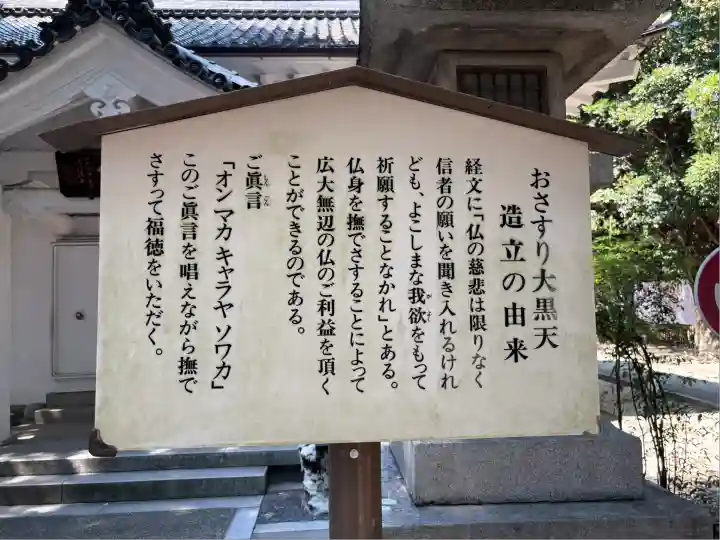 おさすり大黒天
造立の由来
経文に「仏の慈悲は限りなく
信者の願いを聞き入れるけれ
ども、よこしまな我欲をもって
がよく
祈願することなかれ」とある。
仏身を撫でさすることによって
広大無辺の仏のご利益を頂く
ことができるのである。
ご眞言
しんごん
「オンマカ キャラヤ ソワカ」
このご眞言を唱えながら撫で
さすって福徳をいただく。